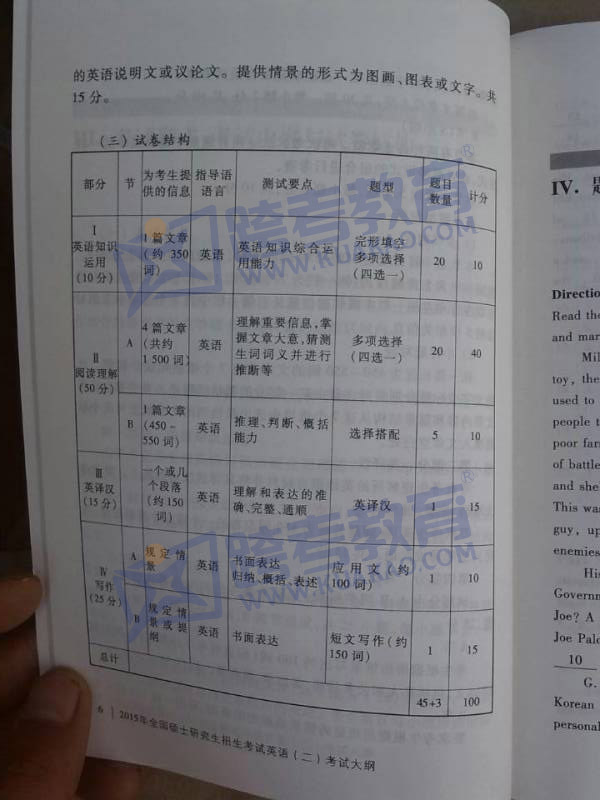 的英语说明文或议论文。提供情景的形式为图画、图表或文字。共
15 分。
(三) 试卷结构
部分 节 为考生提供的信息 指导语语言 测试要点 题型 题目数量 计分
Ⅰ 英语知识运用 (10 分) 1 篇文章 (约 350 词) 英语 英语知识综合运用能力 完形填空 多项选择 (四选一) 20 10
Ⅱ 阅读理解 (50 分) A 4 篇文章 (共约 1 500 词) 英语 理解重要信息,掌握文章大意,猜测生词词义并进行推断等 多项选择 (四选一) 20 40
B 1 篇文章 (450 – 550 词) 英语 推理、判断、概括能力 选择搭配 5 10
Ⅲ 英译汉 (15 分) 一个或几个段落 (约 150 词) 英语 理解和表达的准确、完整、通顺 英译汉 1 15
Ⅳ 写作 (25 分) A 规定情景 英语 书面表达 归纳、概括、表述 应用文 (约 100 词) 1 10
B 规定情景或提纲 英语 书面表达 短文写作 (约 150 词) 1 15
总计 45+3 100
6 | 2015年全国硕士研究生招生考试英语(二)考试大纲
跨考教育
WWW.KUAKAO.COM
跨考教育
WWW.KUAKAO.COM
Ⅳ. 题
Direction
Read the
and mar
Mil
toy, the
used to
people t
poor farm
of battle
and she
This was
guy, up
enemies
His
Governm
Joe? A
Joe Palo
10
G.
Korean
personal